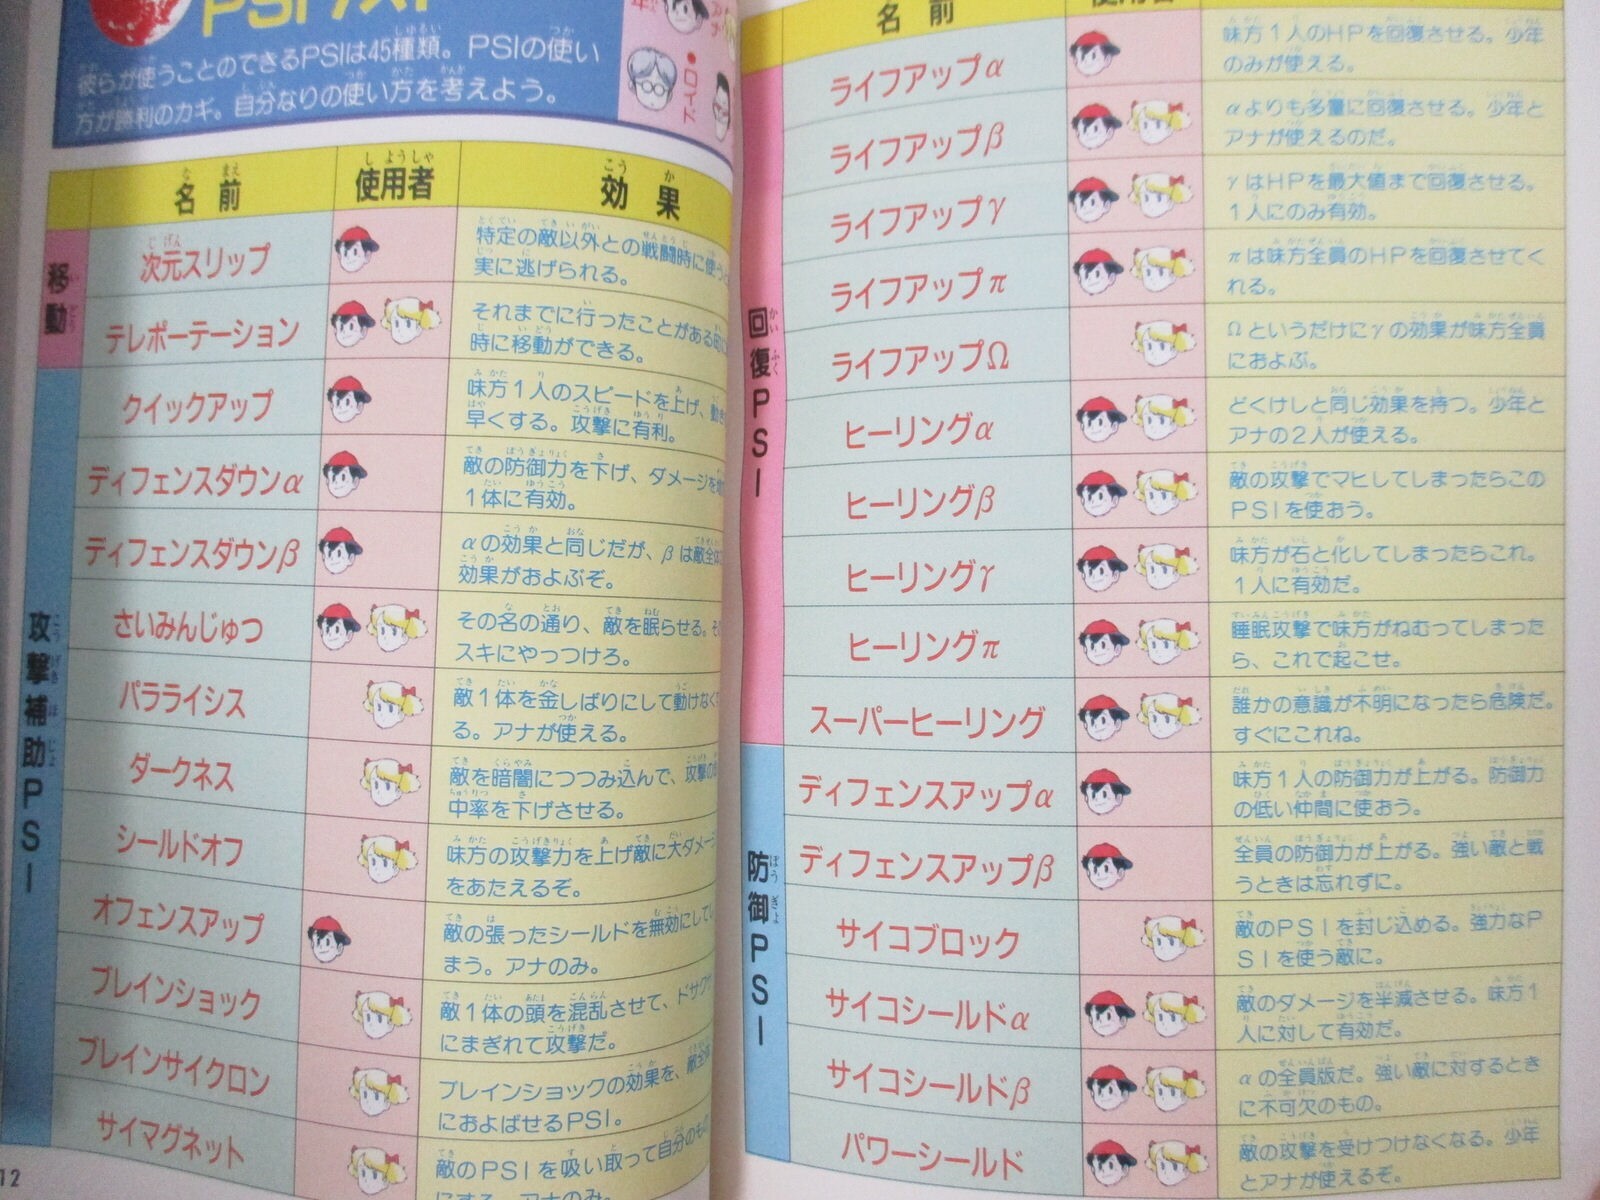 PSIリスト
彼らが使うことのできるPSIは45種類。PSIの使い
方が勝利のカギ。自分なりの使い方を考えよう。
アナ
●ロイド
名前 使用者 効果
移動
次元スリップ
特定の敵以外との戦闘時に使うと
実に逃げられる。
テレポーテーション
それまでに行ったことがある
時に移動ができる。
攻撃補助PSI
クイックアップ
味方1人のスピードを上げ、動き
早くする。攻撃に有利。
ディフェンスダウンα
敵の防御力を下げ、ダメージを
1体に有効。
ディフェンスダウンβ
αの効果と同じだが、βは敵全体
効果がおよぶぞ。
さいみんじゅつ
その名の通り、敵を眠らせる。
スキにやっつけろ。
パラライシス
敵1体を金しばりにして動けなく
る。アナが使える。
ダークネス
敵を暗闇につつみ込んで、攻撃の
中率を下げさせる。
シールドオフ
味方の攻撃力を上げ敵に大ダメージ
をあたえるぞ。
オフェンスアップ
敵の張ったシールドを無効にして
まう。アナのみ。
ブレインショック
敵1体の頭を混乱させて、ドサクサ
にまぎれて攻撃だ。
ブレインサイクロン
ブレインショックの効果を、敵全体
におよばせるPSI。
サイマグネット
敵のPSIを吸い取って自分のもの
にする。アナのみ。
12
名前 使用者
回復PSI
ライフアップα
味方1人のHPを回復させる。少年
のみが使える。
ライフアップβ
αよりも多量に回復させる。少年と
アナが使えるのだ。
ライフアップγ
γはHPを最大値まで回復させる。
1人にのみ有効。
ライフアップπ
πは味方全員のHPを回復させてく
れる。
ライフアップΩ
Ωというだけにγの効果が味方全員
におよぶ。
ヒーリングα
どくけしと同じ効果を持つ。少年と
アナの2人が使える。
ヒーリングβ
敵の攻撃でマヒしてしまったらこの
PSIを使おう。
ヒーリングγ
味方が石と化してしまったらこれ。
1人に有効だ。
ヒーリングπ
睡眠攻撃で味方がねむってしまった
ら、これで起こせ。
スーパーヒーリング
誰かの意識が不明になったら危険だ。
すぐにこれね。
防御PSI
ディフェンスアップα
味方1人の防御力が上がる。防御力
の低い仲間に使おう。
ディフェンスアップβ
全員の防御力が上がる。強い敵と戦
うときは忘れずに。
サイコブロック
敵のPSIを封じ込める。強力なP
SIを使う敵に。
サイコシールドα
敵のダメージを半減させる。味方1
人に対して有効だ。
サイコシールドβ
αの全員版だ。強い敵に対するとき
に不可欠のもの。
パワーシールド
敵の攻撃を受けつけなくなる。少年
とアナが使えるぞ。